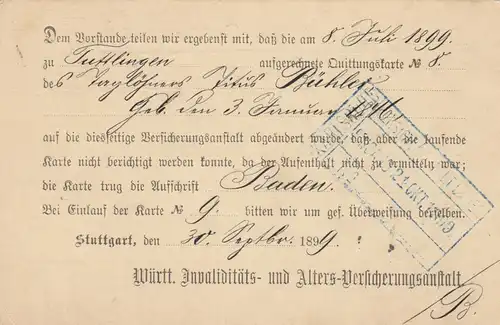 Dem Vorstande teilen wir ergebenst mit, daß die am 8. Juli 1899.
zu Tuttlingen aufgerechnete Quittungskarte № 8.
des Taglöhners Titus Bühler
Geb. den 3. Januar
auf die diesseitige Versicherungsanstalt abgeändert wurde, daß aber die laufende
Karte nicht berichtigt werden konnte, da der Aufenthalt nicht zu ermitteln war;
die Karte trug die Aufschrift Baden.
Bei Einlauf der Karte № 9. bitten wir um gef. Überweisung derselben.
Stuttgart, den 30. Septbr. 1899.
Württ. Invaliditäts- und Alters-Versicherungsanstalt.
B.